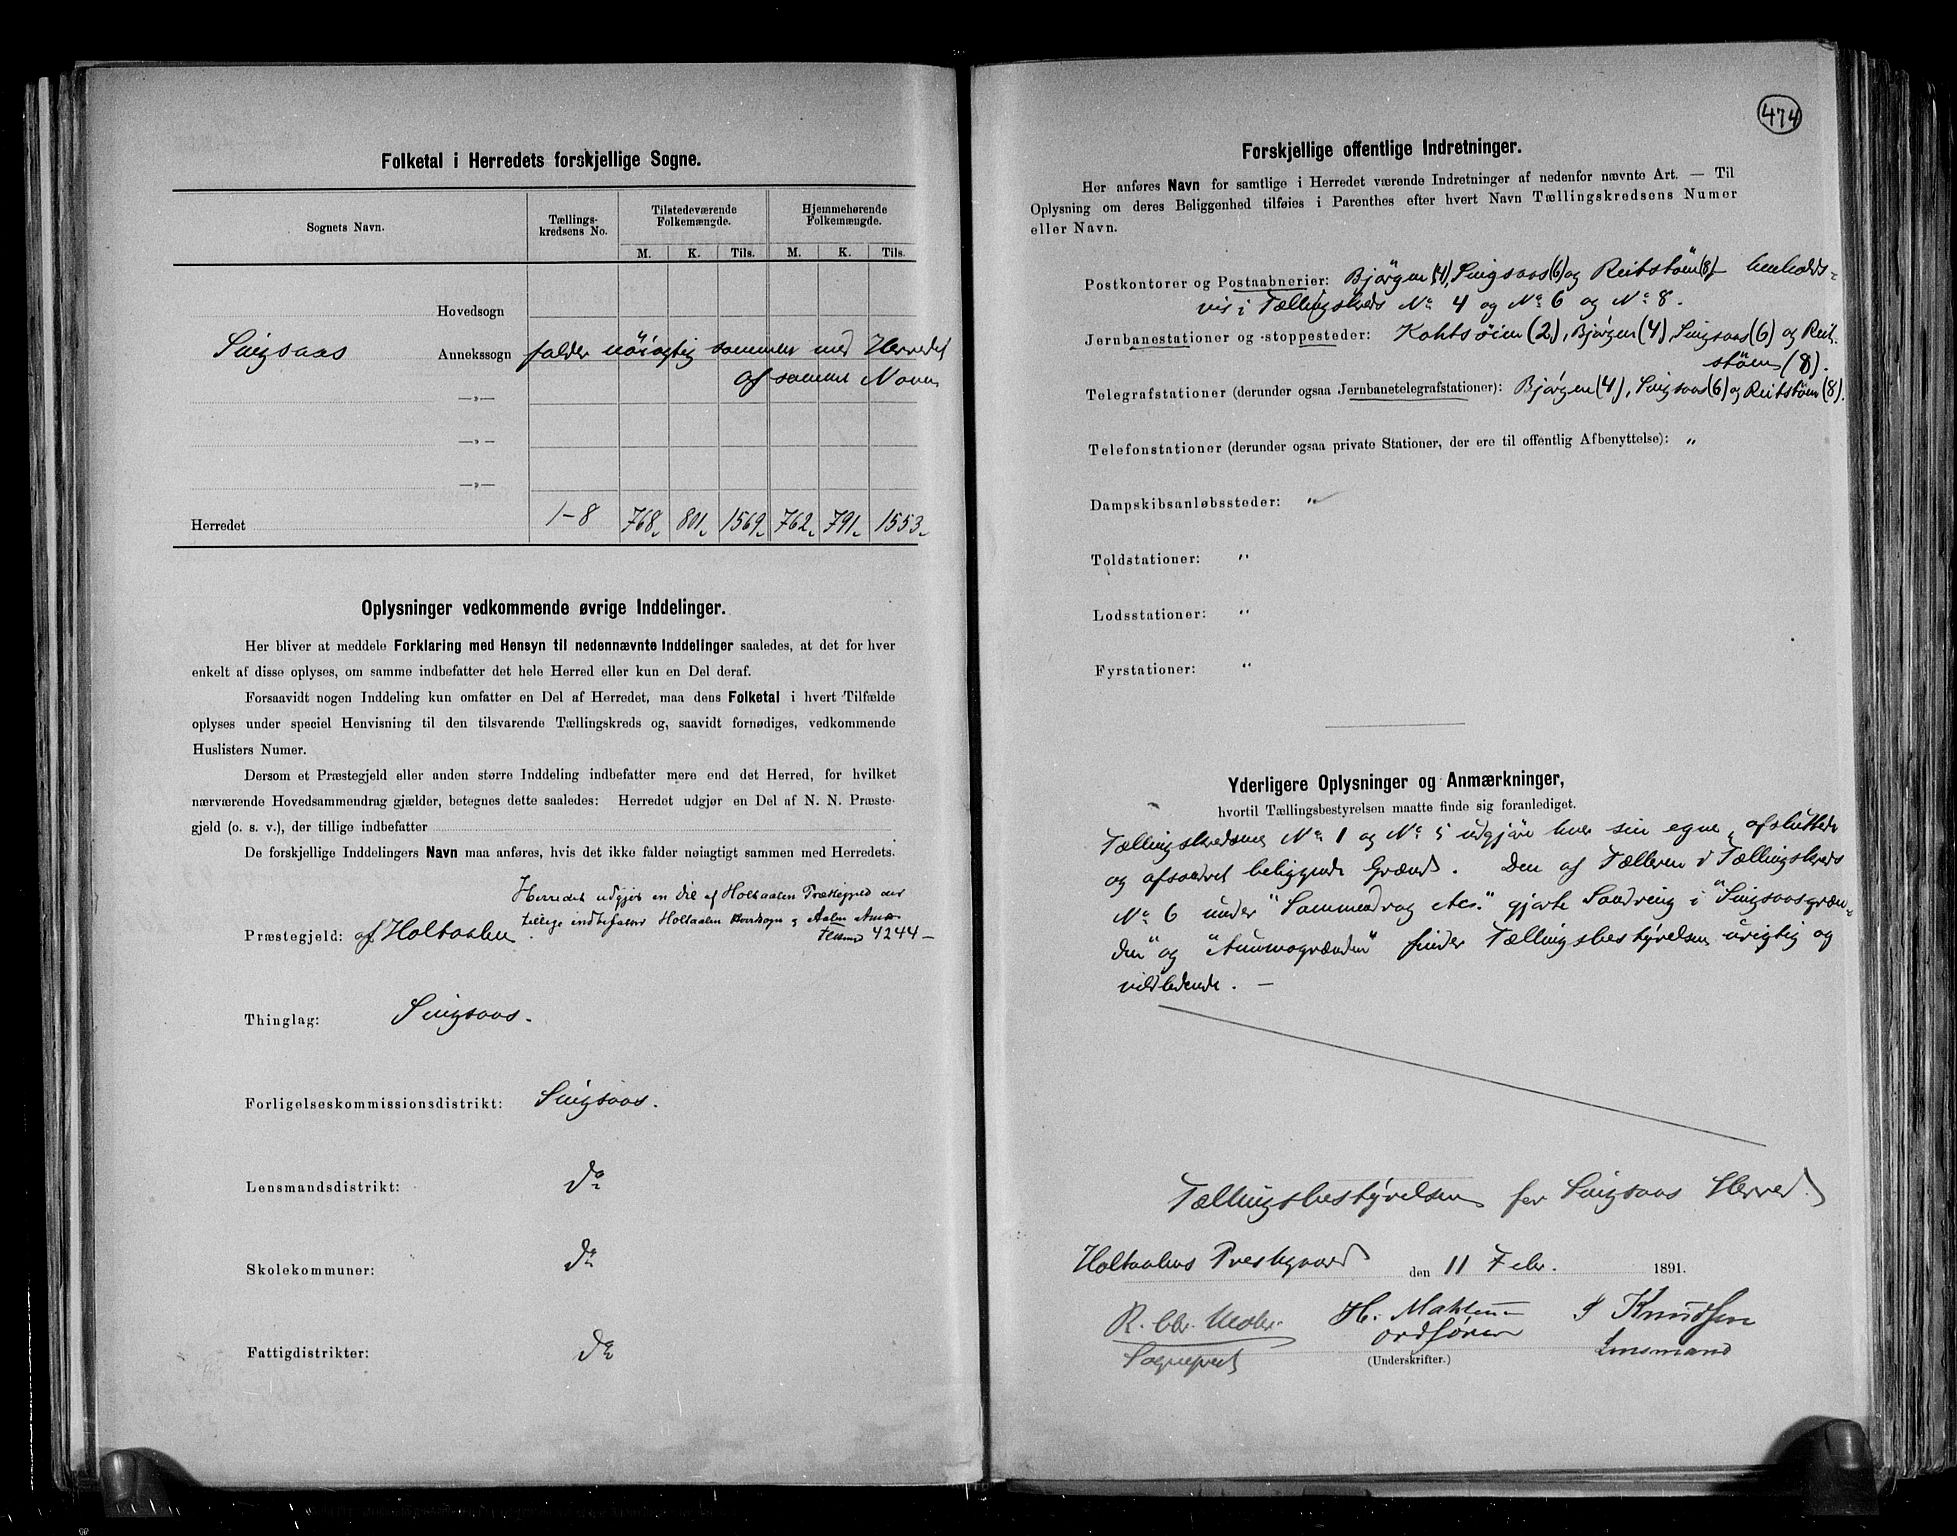 Folketal i Herredets forskjellige Sogne.
Sognets Navn.
Tællings-
kredsens No.
Tilstedeværende
Folkemængde.
Hjemmehørende
Folkemængde.
M. K. Tils. M. K. Tils.
Hovedsogn
Singsaas Annekssogn falder nöiagtig sammen med Herredet
af samme Navn
—„—
—„—
—„—
Herredet 1-8 768 801 1569 762 791 1553
Oplysninger vedkommende øvrige Inddelinger.
Her bliver at meddele Forklaring med Hensyn til nedennævnte Inddelinger saaledes, at det for hver
enkelt af disse oplyses, om samme indbefatter det hele Herred eller kun en Del deraf.
Forsaavidt nogen Inddeling kun omfatter en Del af Herredet, maa dens Folketal i hvert Tilfælde
oplyses under speciel Henvisning til den tilsvarende Tællingskreds og, saavidt fornødiges, vedkommende
Huslisters Numer.
Dersom et Præstegjeld eller anden større Inddeling indbefatter mere end det Herred, for hvilket
nærværende Hovedsammendrag gjælder, betegnes dette saaledes: Herredet udgjør en Del af N. N. Præste-
gjeld (o. s. v.), der tillige indbefatter
De forskjellige Inddelingers Navn maa anføres, hvis det ikke falder nøiagtigt sammen med Herredets.
Herredet udgjør en Del af Holtaalen Præstegjeld der
tillige indbefatter Holtaalen Hovedsogn og Aalen Anneks
Præstegjeld: af Holtaalen. 4244 —
Thinglag: Singsaas.
Forligelseskommissionsdistrikt: Singsaas.
Lensmandsdistrikt: do
Skolekommuner: do
Fattigdistrikter: do
474
Forskjellige offentlige Indretninger.
Her anføres Navn for samtlige i Herredet værende Indretninger af nedenfor nævnte Art. — Til
Oplysning om deres Beliggenhed tilføies i Parenthes efter hvert Navn Tællingskredsens Numer
eller Navn.
Postkontorer og Postaabnerier: Bjørgen (4), Singsaas (6) og Reitstöen (8) henholds-
vis i Tællingskreds No 4 og No 6 og No 8.
Jernbanestationer og -stoppesteder: Kohtsöien (2), Bjørgen (4), Singsaas (6) og Reit-
stöen (8).
Telegrafstationer (derunder ogsaa Jernbanetelegrafstationer): Bjørgen (4), Singsaas (6) og Reitstöen (8).
Telefonstationer (derunder ogsaa private Stationer, der ere til offentlig Afbenyttelse): „
Dampskibsanløbssteder: „
Toldstationer: „
Lodsstationer: „
Fyrstationer: „
Yderligere Oplysninger og Anmærkninger,
hvortil Tællingsbestyrelsen maatte finde sig foranlediget.
Tællingskredsene No 1 og No 5 udgjöre hver sin egne, afsluttede
og afsondret beliggende Grænd. Den af Tælleren i Tællingskreds
No 6 under "Sammendrag etc." gjorte Sondring i "Singsaasgræn-
den" og "Ammogrænden" finder Tællingsbestyrelsen urigtig og
vildledende. —
Tællingsbestyrelsen for Singsaas Herred.
Holtaalens Prestegaard den 11 Febr. 1891.
R. Chr. H. S Knudsen
Sogneprest ordförer Lensmand
(Underskrifter.)